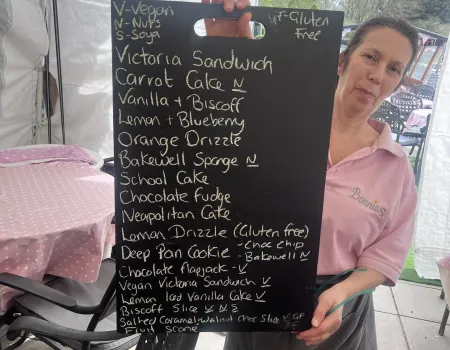 V-Vegan
N-Nuts
S-Soya
GF-Gluten
Free
Victoria Sandwich
Carrot Cake N
Vanilla + Biscoff
Lemon + Blueberry
Orange Drizzle
Bakewell Sponge N
School Cake
Chocolate Fudge
Neapolitan Cake
Lemon Drizzle (Gluten free)
Deep Pan Cookie - Choc Chip
- Bakewell N
Chocolate flapjack - V
Vegan Victoria Sandwich V
Lemon Vanilla Cake V
Biscoff Slice V N S
Salted Caramel Walnut Choc Slice V GF
Fruit Scone
Bonnie's